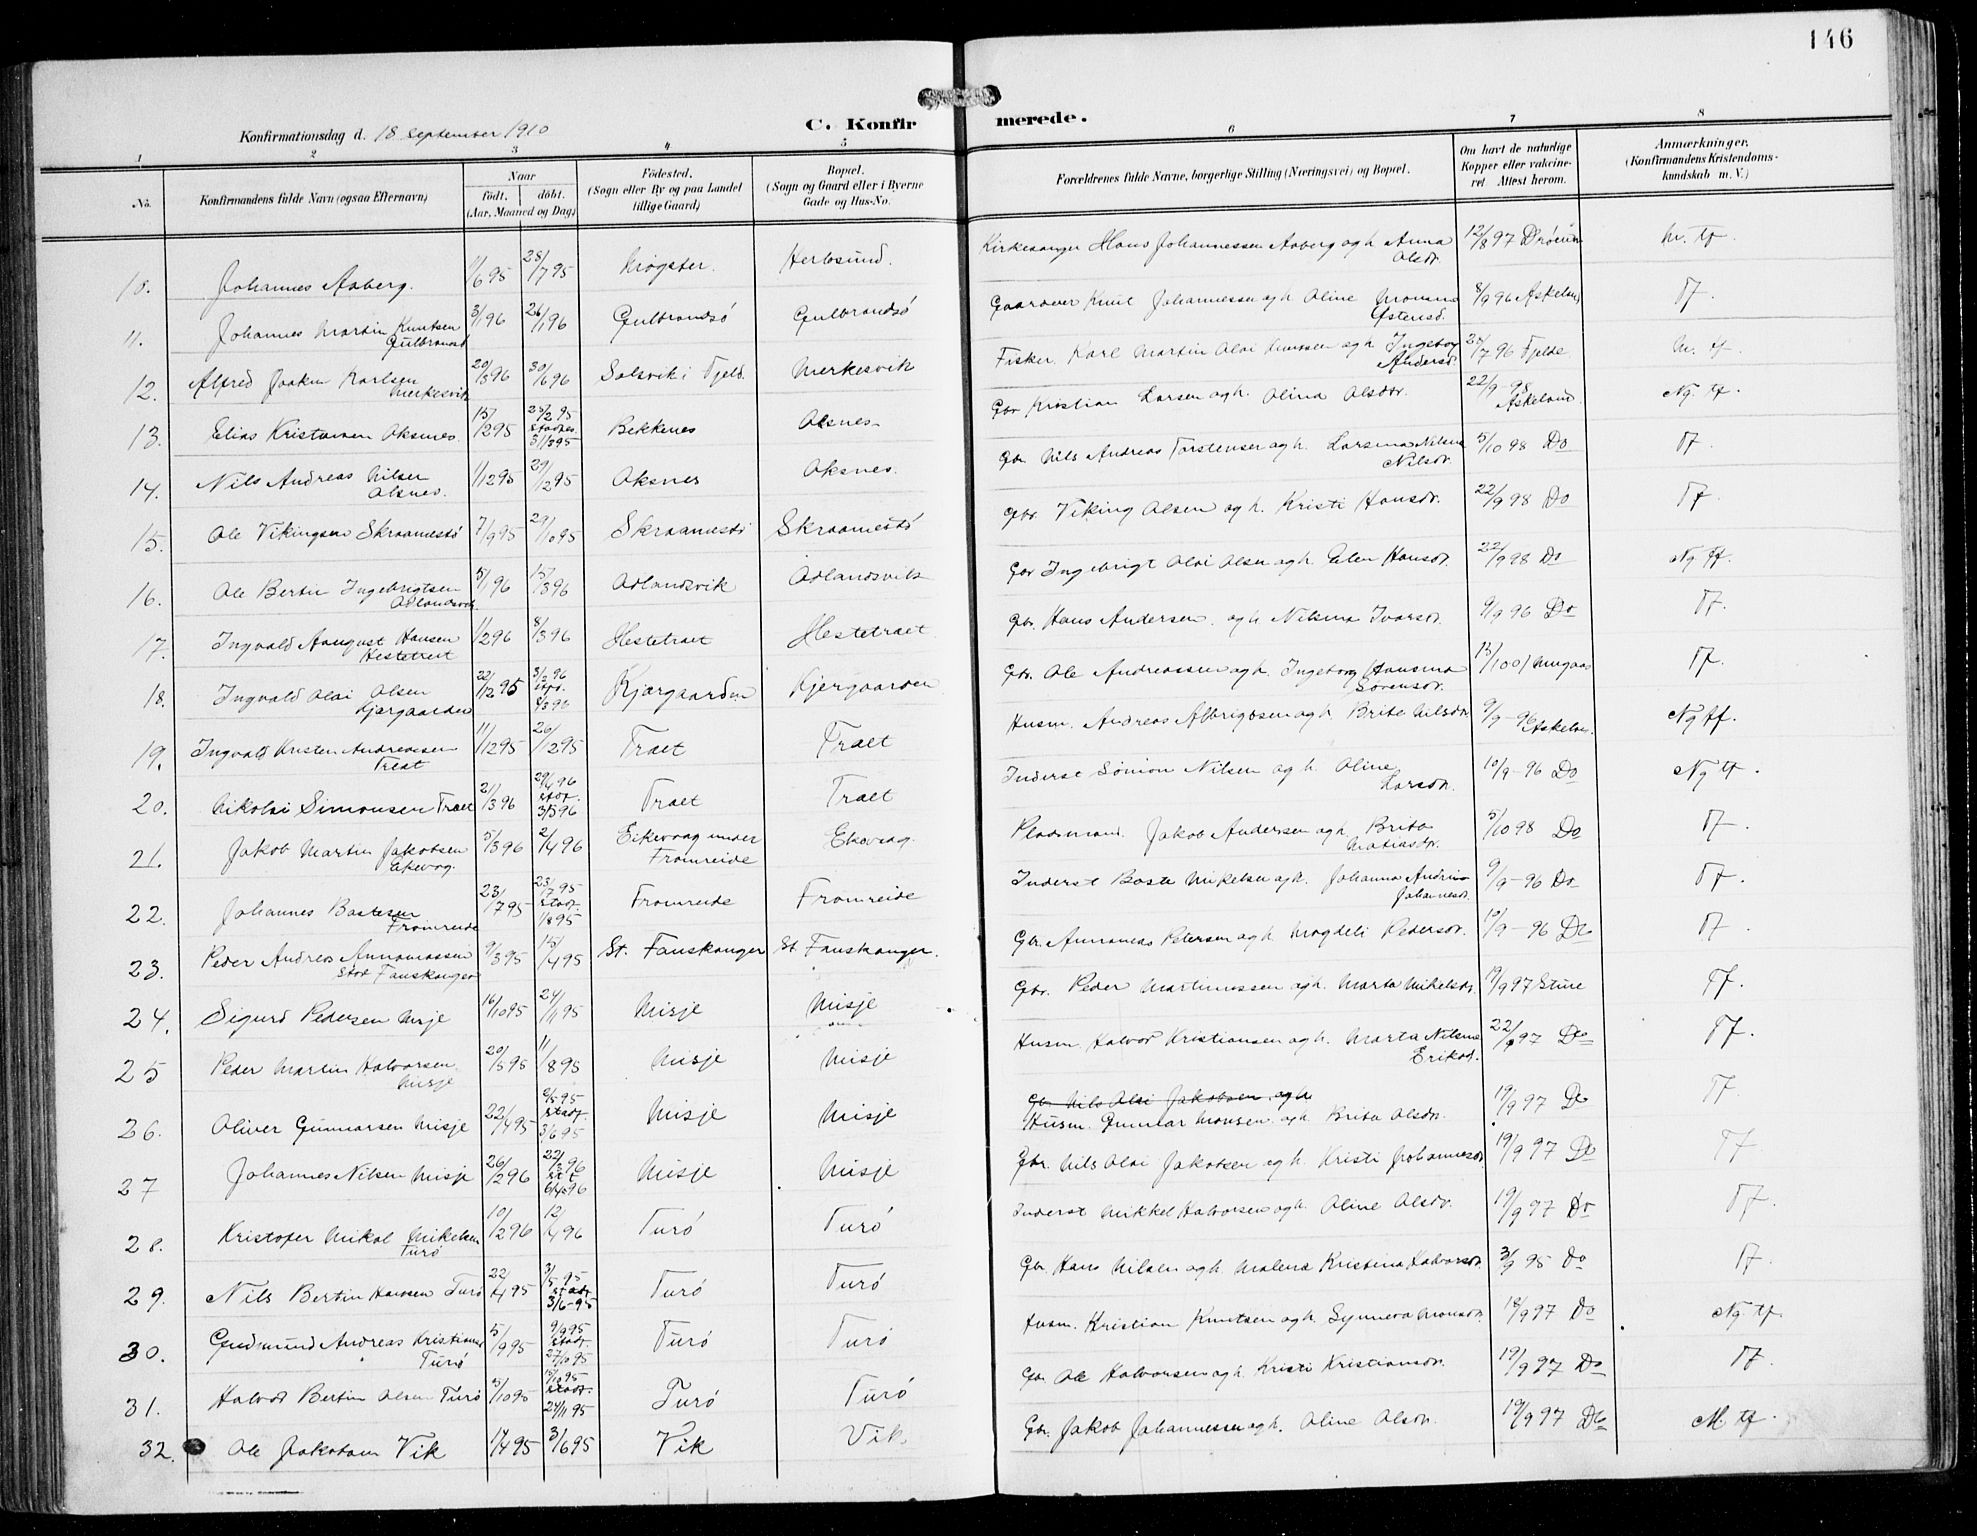 146
Konfirmationsdag d. 18 september 1910
C. Konfirmerede.
1 2 3 4 5 6 7 8
No.
Konfirmandens fulde Navn (ogsaa Efternavn)
Naar
födt. döbt.
(Aar, Maaned og Dag)
Födested.
(Sogn eller By og paa Landet
tillige Gaard)
Bopæl.
(Sogn og Gaard eller i Byerne
Gade og Hus-No.
Forældrenes fulde Navne, borgerlige Stilling (Næringsvei) og Bopæl.
Om havt de naturlige
Kopper eller vakcine-
ret Attest herom.
Anmærkninger.
(Konfirmandens Kristendoms-
kundskab m. V.)
10. Johannes Aaberg. 11/6 95 28/7 95 Møgster. Herlosund. Kirkesanger Hans Johannessen Aaberg og h. Anna Olsdr. 12/8 97 m. tf.
11. Johannes Martin Knutsen Gulbrandsö 3/1 96 26/1 96 Gulbrandsö Gulbrandsö Gaardbr Knut Johannessen og h. Oline 8/9 96 Tf.
12. Alfred Joakim Karlsen Merkesvik 20/3 96 30/6 96 Solsvik i Fjeld. Merkesvik Fisker Karl Martin Olai og h. Ingeborg Andersd. 7 96 Fjelde m. tf.
13. Elias Kristiansen Oksnes. 15/2 95 stadf. 31/3 95 Bekkenes Oksnes Gbr Kristian Larsen og h. Olina Olsdr. 22/9-98 Askeland. Ng. tf.
14. Nils Andreas Nilsen Oksnes. 1/12 95 29/12 95 Oksnes Oksnes. Gbr. Nils Andreas Torstensen og h. Larsina Nilsina Nilsdr. 5/10 98 Do Tf.
15. Ole Vikingsen Skraamestö 7/9 95 29/10 95 Skraamestö Skraamestö Gbr. Viking Olsen og h. Kristi Hansdr. 22/9 98 Do Tf.
16. Ole Bertin Ingebrigtsen Adlandsvik 5/1 96 15/3 96 Adlandsvik Adlandsvik Gbr Ingebrigt Olai Olsen og h. Elen Hansdr. 22/9 98 Do Ng tf.
17. Ingvald August Hansen Hestetræet 1/2 96 8/3 96 Hestetræet Hestetræet Gbr. Hans Andersen og h. Nilsina Ivarsdr. 9/9 96 Do Tf.
18. Ingvald Olai Olsen Kjærgaarden 22/12 95 stadf. Kjærgaarden Kjergaarden Gbr. Ole Andreassen og h. Ingeborg Hansina Sörensdr. 13/10 01 Tf.
19. Ingvald Kristen Andreassen Træet 11/12 95 26/12 95 Træet Træet Husm. Andreas Albrigtsen og h. Brite Nilsdr. 9/9-96 Ng tf.
20. Nikolai Simonsen Træet 21/3 96 29/4 96 stadf. 31/5 96 Træet Træet Inderst Simon Nilsen og h. Oline Larsdr. 10/9-96 Do Ng tf.
21. Jakob Martin Jakobsen Ekevog. 5/3 96 2/4 96 Eikevaag under Fromreide Ekevaag. Pladsmand. Jakob Andersen og h. Brita Matiasdr. 5/10 98 Do Tf.
22. Johannes Bastesen Fromreide 23/7 95 23/7 95 stadf. 1/8 95 Fromreide Fromreide Inderst Baste Mikelsen og h. Johanna Andrina Johannesdr. 9/9-96 Do Tf.
23. Peder Andreas Annaniassen Stor Fauskanger 9/3 95 15/4 95 St. Fauskanger St. Fauskanger. Gbr. Annanias Petersen og h. Magdeli Pedersdr. 10/9-96 Do Tf.
24. Sigurd Pedersen Misje 16/10 95 24/11 95 Misje Misje Gbr. Peder Martinussen og h. Marta Mikelsdr. 19/9 97 Sture Tf.
25 Peder Martin Halvorsen Misje 20/5 95 11/8 95 Misje Misje Husm. Halvor Kristiansen og h. Marta Nilsina Eriksd. 22/9 97 Do Tf.
26. Oliver Gunnarsen Misje 22/4 95 6/5 95 stadf. 3/6 95 Misje Misje Gbr. Nils Olai Jakobsen og h
Husm. Gunnar Monsen og h. Brita Olsdr. 19/9 97 Do Tf
27 Johannes Nilsen Misje 26/2 96 22/3 96 6/4 96 Misje Misje Gbr. Nils Olai Jakobsen og h. Kristi Johannesdr. 19/9 97 Do Tf
28. Kristofer Mikal Mikelsen Turö 10/2 96 12/4 96 Turö Turö Inderst Mikkel Halvorsen og h. Oline Olsdr. 19/9 97 Do Tf.
29. Nils Bertin Hansen Turö 22/4 95 3/5 95 stadf. 3/6-95 Turö Turö Gbr. Hans Nilsen og h Malene Kristina Halvorsdr. 3/9 95 Do Tf.
30. Gudmund Andreas Kristiansen Turö 5/9 95 9/9 95 stadf. 27/10 95 Turö Turö Husm. Kristian Knutsen og h. Synneva Monsdr. 18/9 97 Do Ng tf.
31. Halvor Bertin Olsen Turö 5/10 95 15/10 95 stadf. 24/11 95 Turö Turö Gbr. Ole Halvorsen og h. Kristi Kristiansdr. 19/9 97 Do Tf.
32. Ole Jakobsen Vik 17/4 95 3/6 95 Vik Vik. Gbr. Jakob Johannessen og h. Oline Olsdr. 19/9 97 Do M tf.